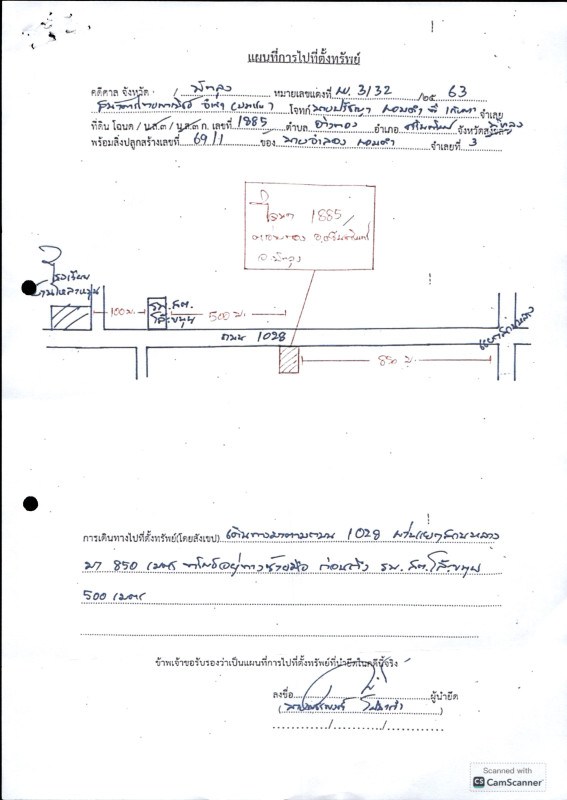 แผนที่การไปที่ตั้งทรัพย์
คดีศาล จังหวัด พัทลุง หมายเลขแดงที่ ผบ. 3132 /๒๕ 63
โจทก์ จำเลย
ที่ดิน โฉนด / น.ส.๓ / น.ส.๓ ก. เลขที่ 1885 ตำบล อ่างทอง อำเภอ ศรีนครินทร์ จังหวัด พัทลุง
พร้อมสิ่งปลูกสร้างเลขที่ 69/1 ของ นายจำลอง จำเลยที่ 3
โฉนด 1885
ต.อ่างทอง อ.ศรีนครินทร์
จ.พัทลุง
โรงเรียน
100 ม.
รพ.สต.
500 ม.
ถนน 1028
850 ม.
การเดินทางไปที่ตั้งทรัพย์(โดยสังเขป) เดินทางมาตามถนน 1028
มา 850 เมตร ทรัพย์อยู่ทางซ้ายมือ ก่อนถึง รพ.สต.
500 เมตร
ข้าพเจ้าขอรับรองว่าเป็นแผนที่การไปที่ตั้งทรัพย์ที่นำยึดในคดีนี้จริง
ลงชื่อ ผู้นำยึด
Scanned with
CS CamScanner